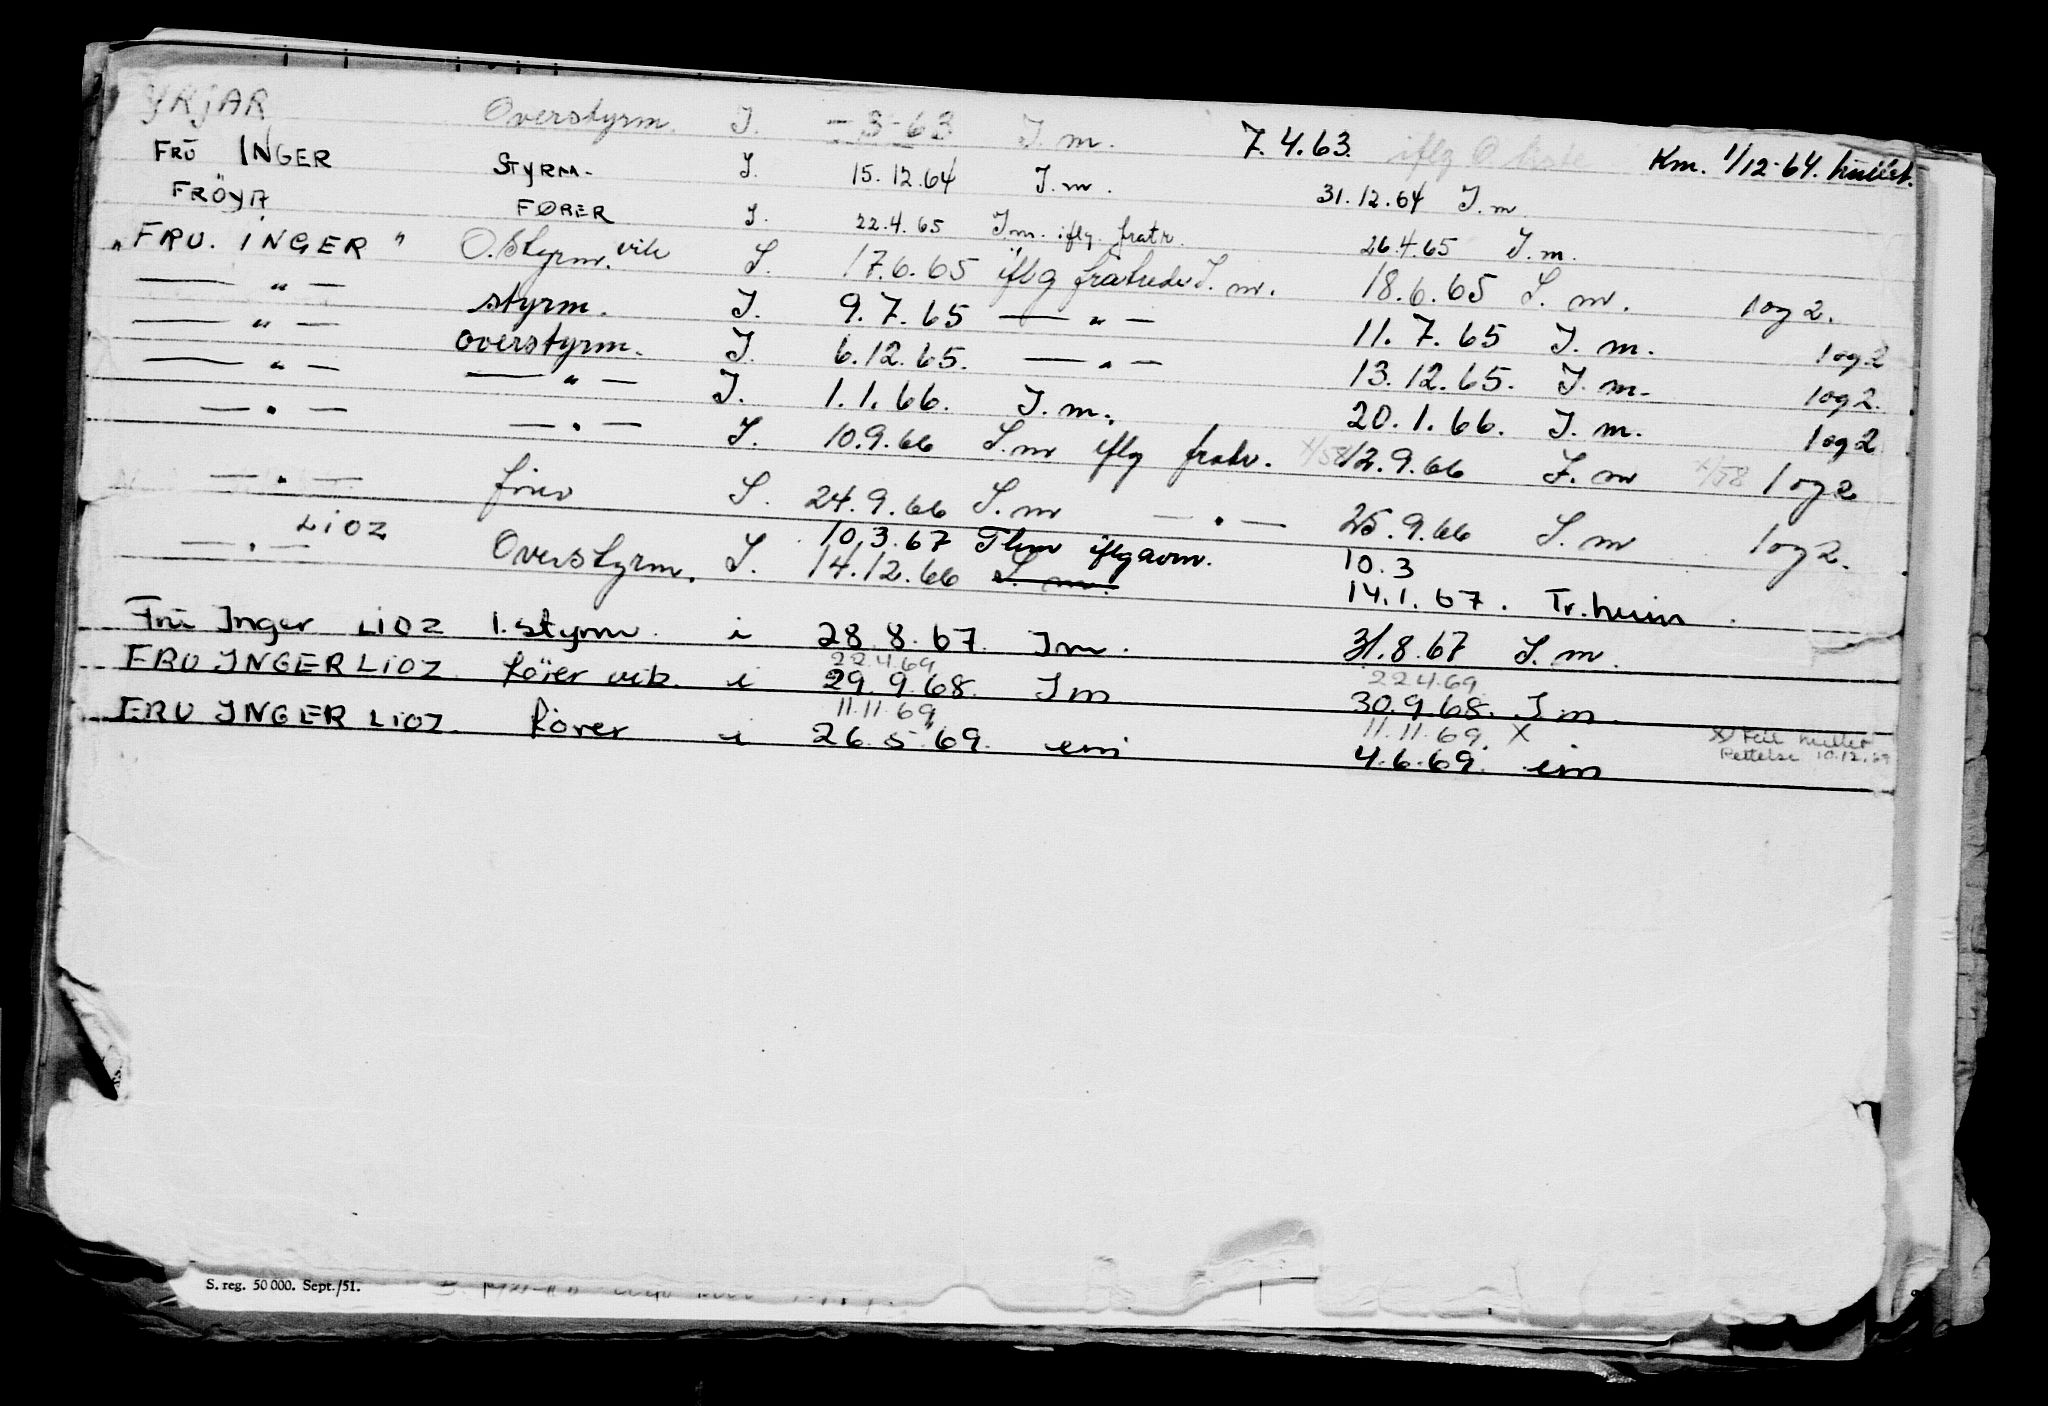 YRJAR Overstyrm. I. - 3 - 63 I. m. 7.4.63. iflg Km. 1/12-64. hullet.
FRU INGER STYRM. I. 15.12.64 I. m. 31.12.64 I. m.
FRÖYA FØRER I. 22.4.65 I.m. iflg. fratr. 26.4.65 I. m.
"FRU. INGER" O.Styrm. vik I. 17.6.65 iflg fratreden I. m. 18.6.65 I. m. 1 og 2.
— " — styrm. I. 9.7.65 — " — 11.7.65 I. m. 1 og 2
— " — overstyrm. I. 6.12.65. — " — 13.12.65. I. m. 1 og 2.
— " — — " — I. 1.1.66. I. m. 20.1.66. I. m. 1 og 2
— " — — " — I. 10.9.66 I. m iflg fratr. 4/58 12.9.66 I. m 4/58 1 og 2
— " — förer I. 24.9.66 I. m — " — 25.9.66 I. m 1 og 2.
LIOZ 10.3.67 Thm iflg avm. 10.3
— " — Overstyrm. I. 14.12.66 I. m. 14.1.67. Tr.heim
Fru Inger LIOZ 1.styrm. i 28.8.67. I m. 31.8.67 I. m.
22.4.69 22.4.69
FRU INGER LIOZ förer vik. i 29.9.68. I m 30.9.68. I m.
11.11.69 11.11.69. X X) Feil hullet
FRU INGER LIOZ. förer i 26.5.69. em 4.6.69. em Rettelse 10.12.69
S. reg. 50 000. Sept./51.